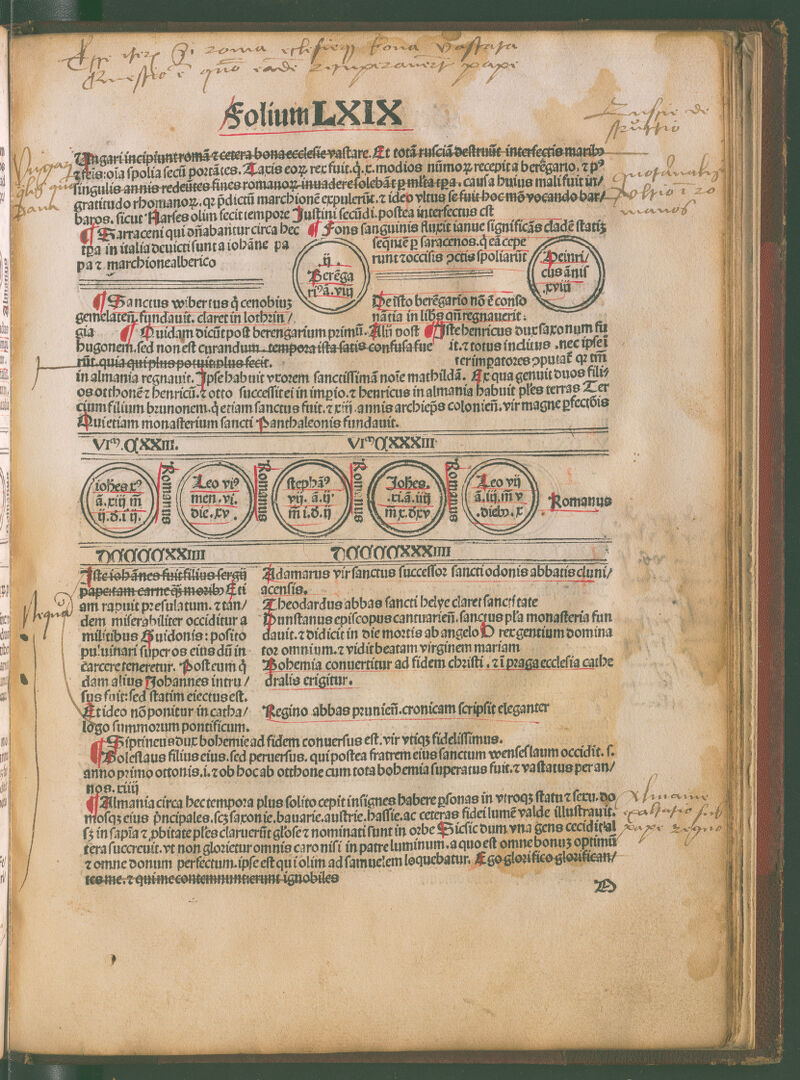 Folium LXIX
Ungari incipiunt romā ⁊ cetera bona ecclesie vastare. Et totā rusciā destruūt interfectis marib⁹
⁊ feīs: oīa spolia secū portātes. Taxis eoꝝ rex fuit. q̄. x. modios nūmoꝝ recepit a berēgario. ⁊ p⁹
singulis annis redeūtes fines romanoꝝ inuadere solebāt ꝑ ml̄ta tp̄a. causa huius mali fuit in/
gratitudo rhomanoꝝ. qꝫ p̄dictū marchionē expulerūt. ⁊ ideo vltus se fuit hoc mō vocando bar/
baros. sicut Narses olim fecit tempore Justini secūdi. postea interfectus est
¶ Sarraceni qui dn̄abantur circa hec
tp̄a in italia deuicti sunt a iohāne pa
pa ⁊ marchione alberico
¶ Fons sanguinis fluxit ianue significās cladē statiȝ
sequiē ꝑ saracenos. q̄ eā cepe
runt ⁊ occisis ꝯctis spoliarūt
.ij.
Berēga
ri⁹ ā. viij
Heinri/
cus ānis
.xviij
¶ Sanctus wibertus q̄ cenobiuȝ
gemelateñ. fundauit. claret in lothrin/
gia
De isto berēgario nō ē conso
nātia in libris qn̄ regnauerit:
¶ Quidam dicūt post berengarium primū. Alij post
hugonem. sed non est curandum. tempora ista satis confusa fue
rūt. quia qui plus potuit plus fecit.
¶ Iste henricus dux saxonum fu
it. ⁊ totus inclitus. nec ipse ī
ter imperatores ꝯputat̄ qꝫ tm̄
in almania regnauit. Ipse habuit vxorem sanctissimā noīe mathildā. Ex qua genuit duos fili/
os otthonē ⁊ henricū. ⁊ otto successit ei in imp̄io. ⁊ henricus in almania habuit ples terras Ter
cium filium brunonem. q̄ etiam sanctus fuit. ⁊ xiij annis archiep̄s colonieñ. vir magne ꝑfectōis
Qui etiam monasterium sancti Panthaleonis fundauit.
VIᵐ. CXXIII. VIᵐ CXXXIII
iohēs x⁹
ā. xiij m̄
ij. d. iij.
Romanus
Leo vi⁹
men. vi.
die. xv.
Romanus
stephā⁹
vij. ā. ij
m̄ i. d. ij
Romanus
Johēs.
.xi. ā. iiij
m̄ x. d xv
Romanus
Leo vij
ā. iij. m̄ v
.dieb⁹. x
Romanus
DCCCCXXIIII DCCCCXXXIIII
Iste iohānes fuit filius sergij
pape tam carne qȝ morib⁹ Eti
am rapuit presulatum. ⁊ tan/
dem miserabiliter occiditur a
militibus Guidonis: posito
puluinari super os eius dū in
carcere teneretur. Post eum q̄
dam alius Johannes intru/
sus fuit: sed statim eiectus est.
Et ideo nō ponitur in catha/
logo summorum pontificum.
Adamarus vir sanctus successor sancti odonis abbatis cluni/
acensis.
Theodardus abbas sancti helye claret sanctitate
Dunstanus episcopus cantuarieñ. sanctus pl̄a monasteria fun
dauit. ⁊ didicit in die mortis ab angelo O rex gentium domina
tor omnium. ⁊ vidit beatam virginem mariam
Bohemia conuertitur ad fidem christi. ⁊ ī praga ecclesia cathe
dralis erigitur.
Regino abbas prunieñ. cronicam scripsit eleganter
¶ Siptineus dux bohemie ad fidem conuersus est. vir vtiqȝ fidelissimus.
¶ Boleslaus filius eius. sed peruersus. qui postea fratrem eius sanctum wenseslaum occidit. s.
anno primo ottonis. i. ⁊ ob hoc ab otthone cum tota bohemia superatus fuit. ⁊ vastatus per an/
nos. xiiij
¶ Almania circa hec tempora plus solito cepit insignes habere ꝑsonas in vtroqȝ statu ⁊ sexu. do
mosqȝ eius p̄ncipales. scȝ saxonie. bauarie. austrie. hassie. ac ceteras fidei lumē valde illustrauit.
sȝ in sapīa ⁊ ꝓbitate ples claruerūt gl̄ose ⁊ nominati sunt in orbe Sic sic dum vna gens cecidit al
tera succreuit. vt non glorietur omnis caro nisi in patre luminum. a quo est omne bonuȝ optimū
⁊ omne donum perfectum. ipse est qui olim ad samuelem loquebatur. Ego glorifico glorifican/
tes me. ⁊ qui me contemnunt erunt ignobiles